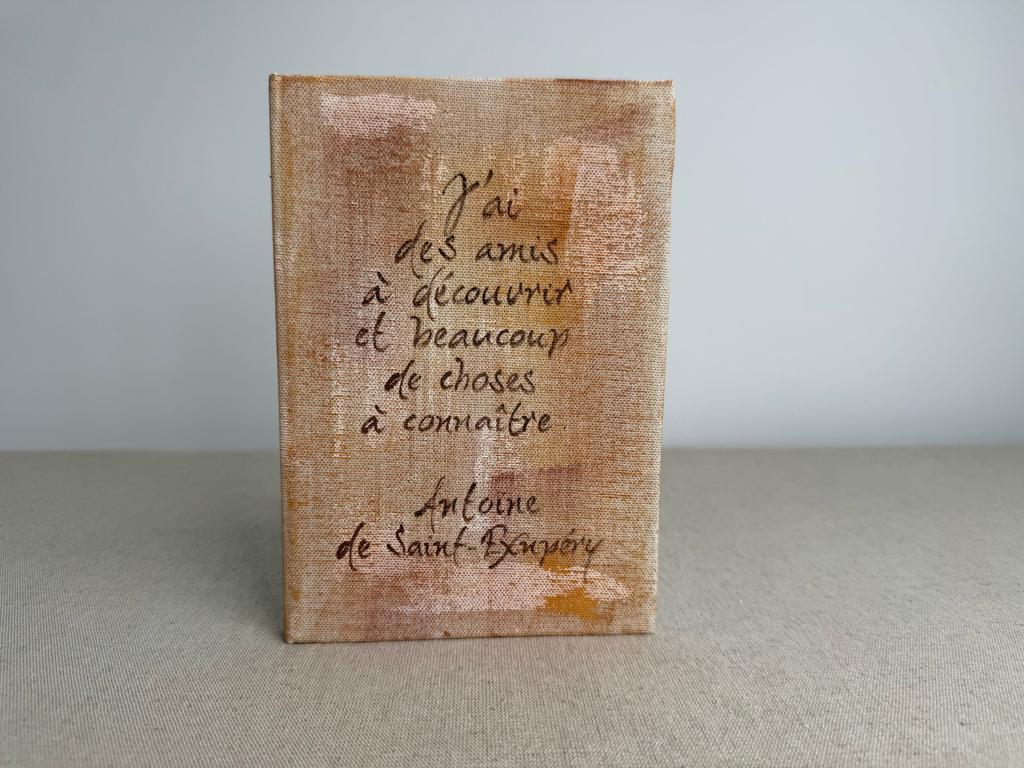 J'ai
des amis
à découvrir
et beaucoup
de choses
à connaître.
Antoine
de Saint-Exupéry